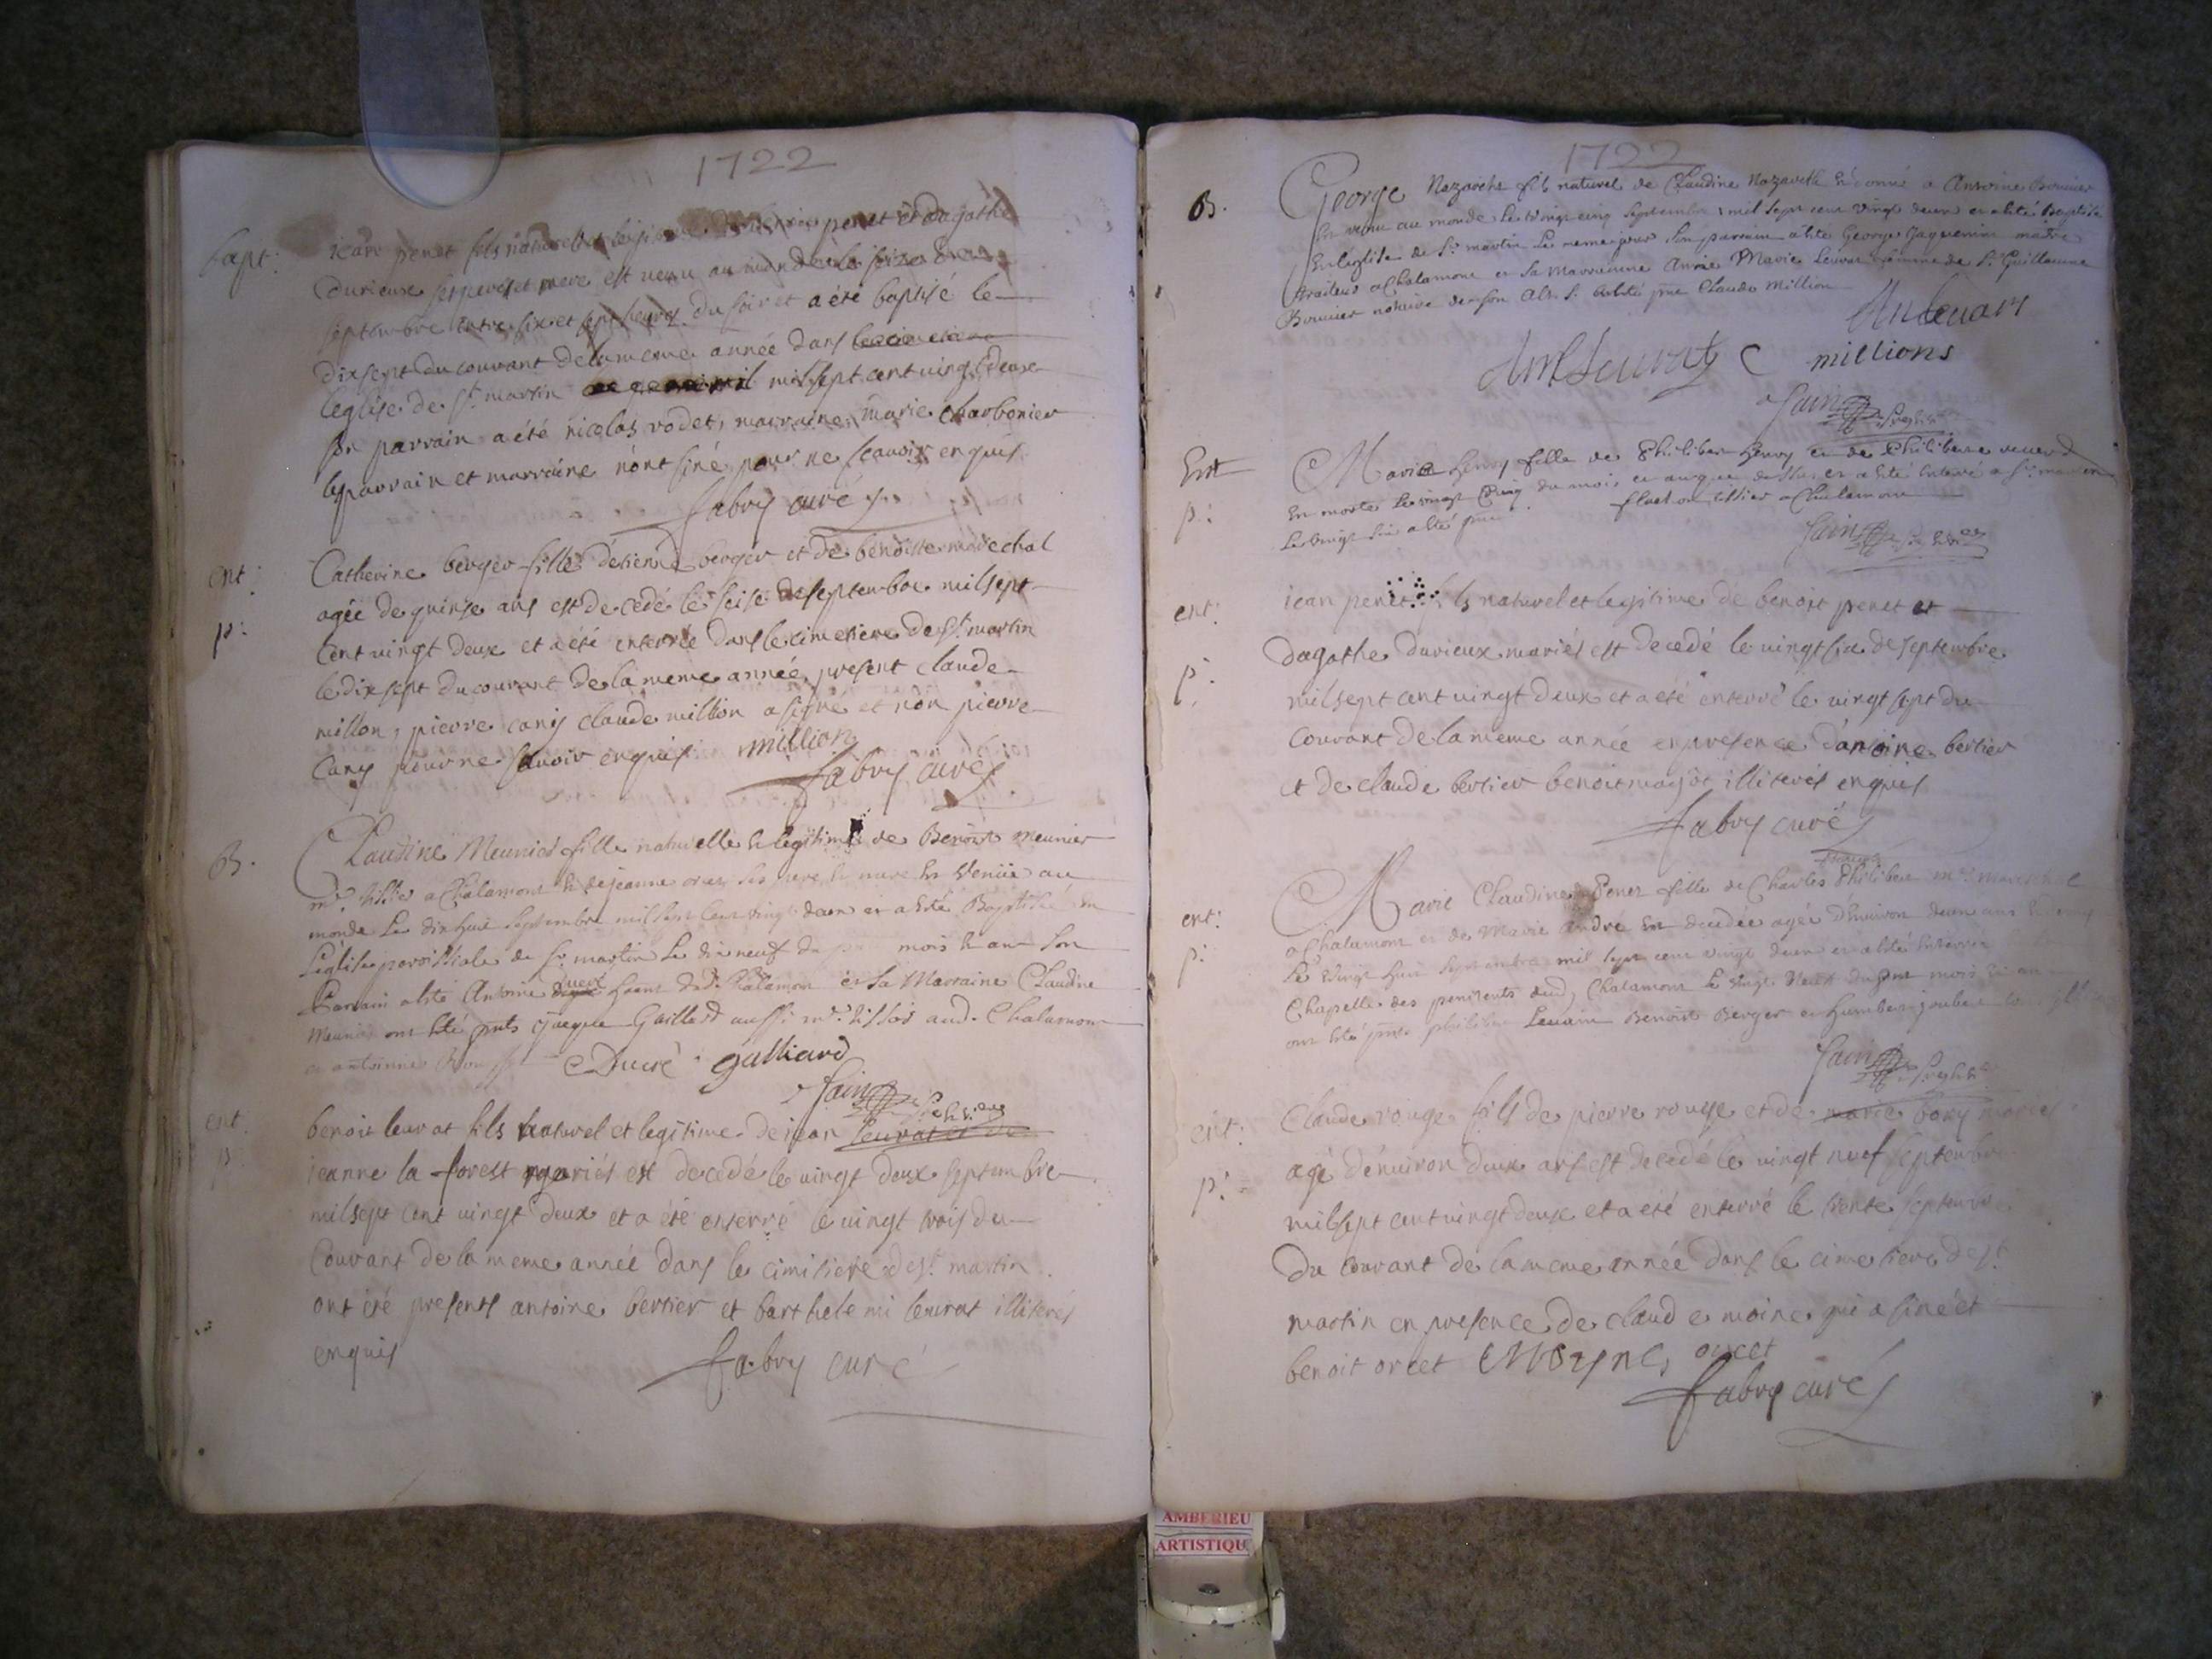 1722
bapt:
jean penet fils naturel et penet et dagathe
durieux ses pere et mere est venu au monde le seize de
septembre entre six et sept heures du soir et a été baptisé le
dixsept du courant de la meme année dans le cimetiere
leglise de St martin mil sept cent vingt deux
son parrain a été nicolas rodet, marraine marie charbonier
le parrain et marraine n'ont siné pour ne scavoir enquis
fabry curé
ent:
p:
Catherine berger fille détienne berger et de benoiste marechal
agée de quinse ans est decedé le seise de septembre mil sept
cent vingt deux et a été enterrée dans le cimetiere de St martin
le dix sept du courant de la meme année, present claude
millon, pierre cany claude million a signé et non pierre
cany pour ne scavoir enquis million
fabry curé
B.
Claudine Meunier fille naturelle & legitime de Benoist Meunier
mr tissier a Chalamont & de jeanne ses pere & mere est venüe au
monde le dix huit septembre mil sept cent vingt deux et a été Baptisée en
L'église paroissiale de St martin le dix neuf du mois & an son
Parrain a été Antoine ducré dud. Chalamont et sa Marraine Claudine
Meunier ont été pnts jacque Gaillard aussi mr tissier aud. Chalamont
et antoinne
Ducré galliard
Jain
ent
p
benoit leurat fils naturel et legitime de jean leurat et de
jeanne la forest mariés est decedé le vingt deux septembre
mil sept cent vingt deux et a été enterré le vingt trois du
Courant de la meme année dans le cimitiere de St martin
ont été presents antoine bertier et barthelemi leurat illiterés
enquis
fabry curé
1722
B.
George Nazareth fils naturel de Claudine Nazareth & donné a Antoine Bouvier
est venu au monde le vingt cinq septembre mil sept cent vingt deux et a été Baptisé
En l'église de St martin le meme jour son parrain a été George Jaquemin maitre
traiteur a Chalamont et sa Marraine Anne Marie Leurat femme de Sr Guillaume
Bouvier notaire Claude Million
AMLeurat C millions
Jain
Ent
p:
Marie Henry fille de Philibert Henry et de Philiberte
est morte le vingt cinq du mois et an que dessus et a été enterré a St martin
Le vingt six a été tissier a Chalamont
Jain
ent:
p:
jean penet fils naturel et legitime de benoit penet et
dagathe durieux mariés est decedé le vingt six de septembre
mil sept cent vingt deux et a été enterré le vingt sept du
Courant de la meme année en presence d'antoine bertier
et de claude bertier benoit illiterés enquis
fabry curé
ent:
p:
Marie Claudine Penet fille de Charles Philibert mr mareschal
a Chalamont et de Marie André est decedée agée d'environ deux ans
Le vingt huit septembre mil sept cent vingt deux et a été enterrée
Chapelle des penitents dud. Chalamont le vingt neuf du pnt mois & an
ont été pnts philibert Benoist Berger et Humbert joubert
Jain
ent:
p:
Claude rouge fils de pierre rouge et de marie bony mariés
agé d'environ deux ans est decedé le vingt neuf septembre
mil sept cent vingt deux et a été enterré le trente septembre
du Courant de la meme année dans le cimetiere de St
martin en presence de claude moine qui a siné et
benoit orcet CMoyne, orcet
fabry curé
AMBERIEU
ARTISTIQU